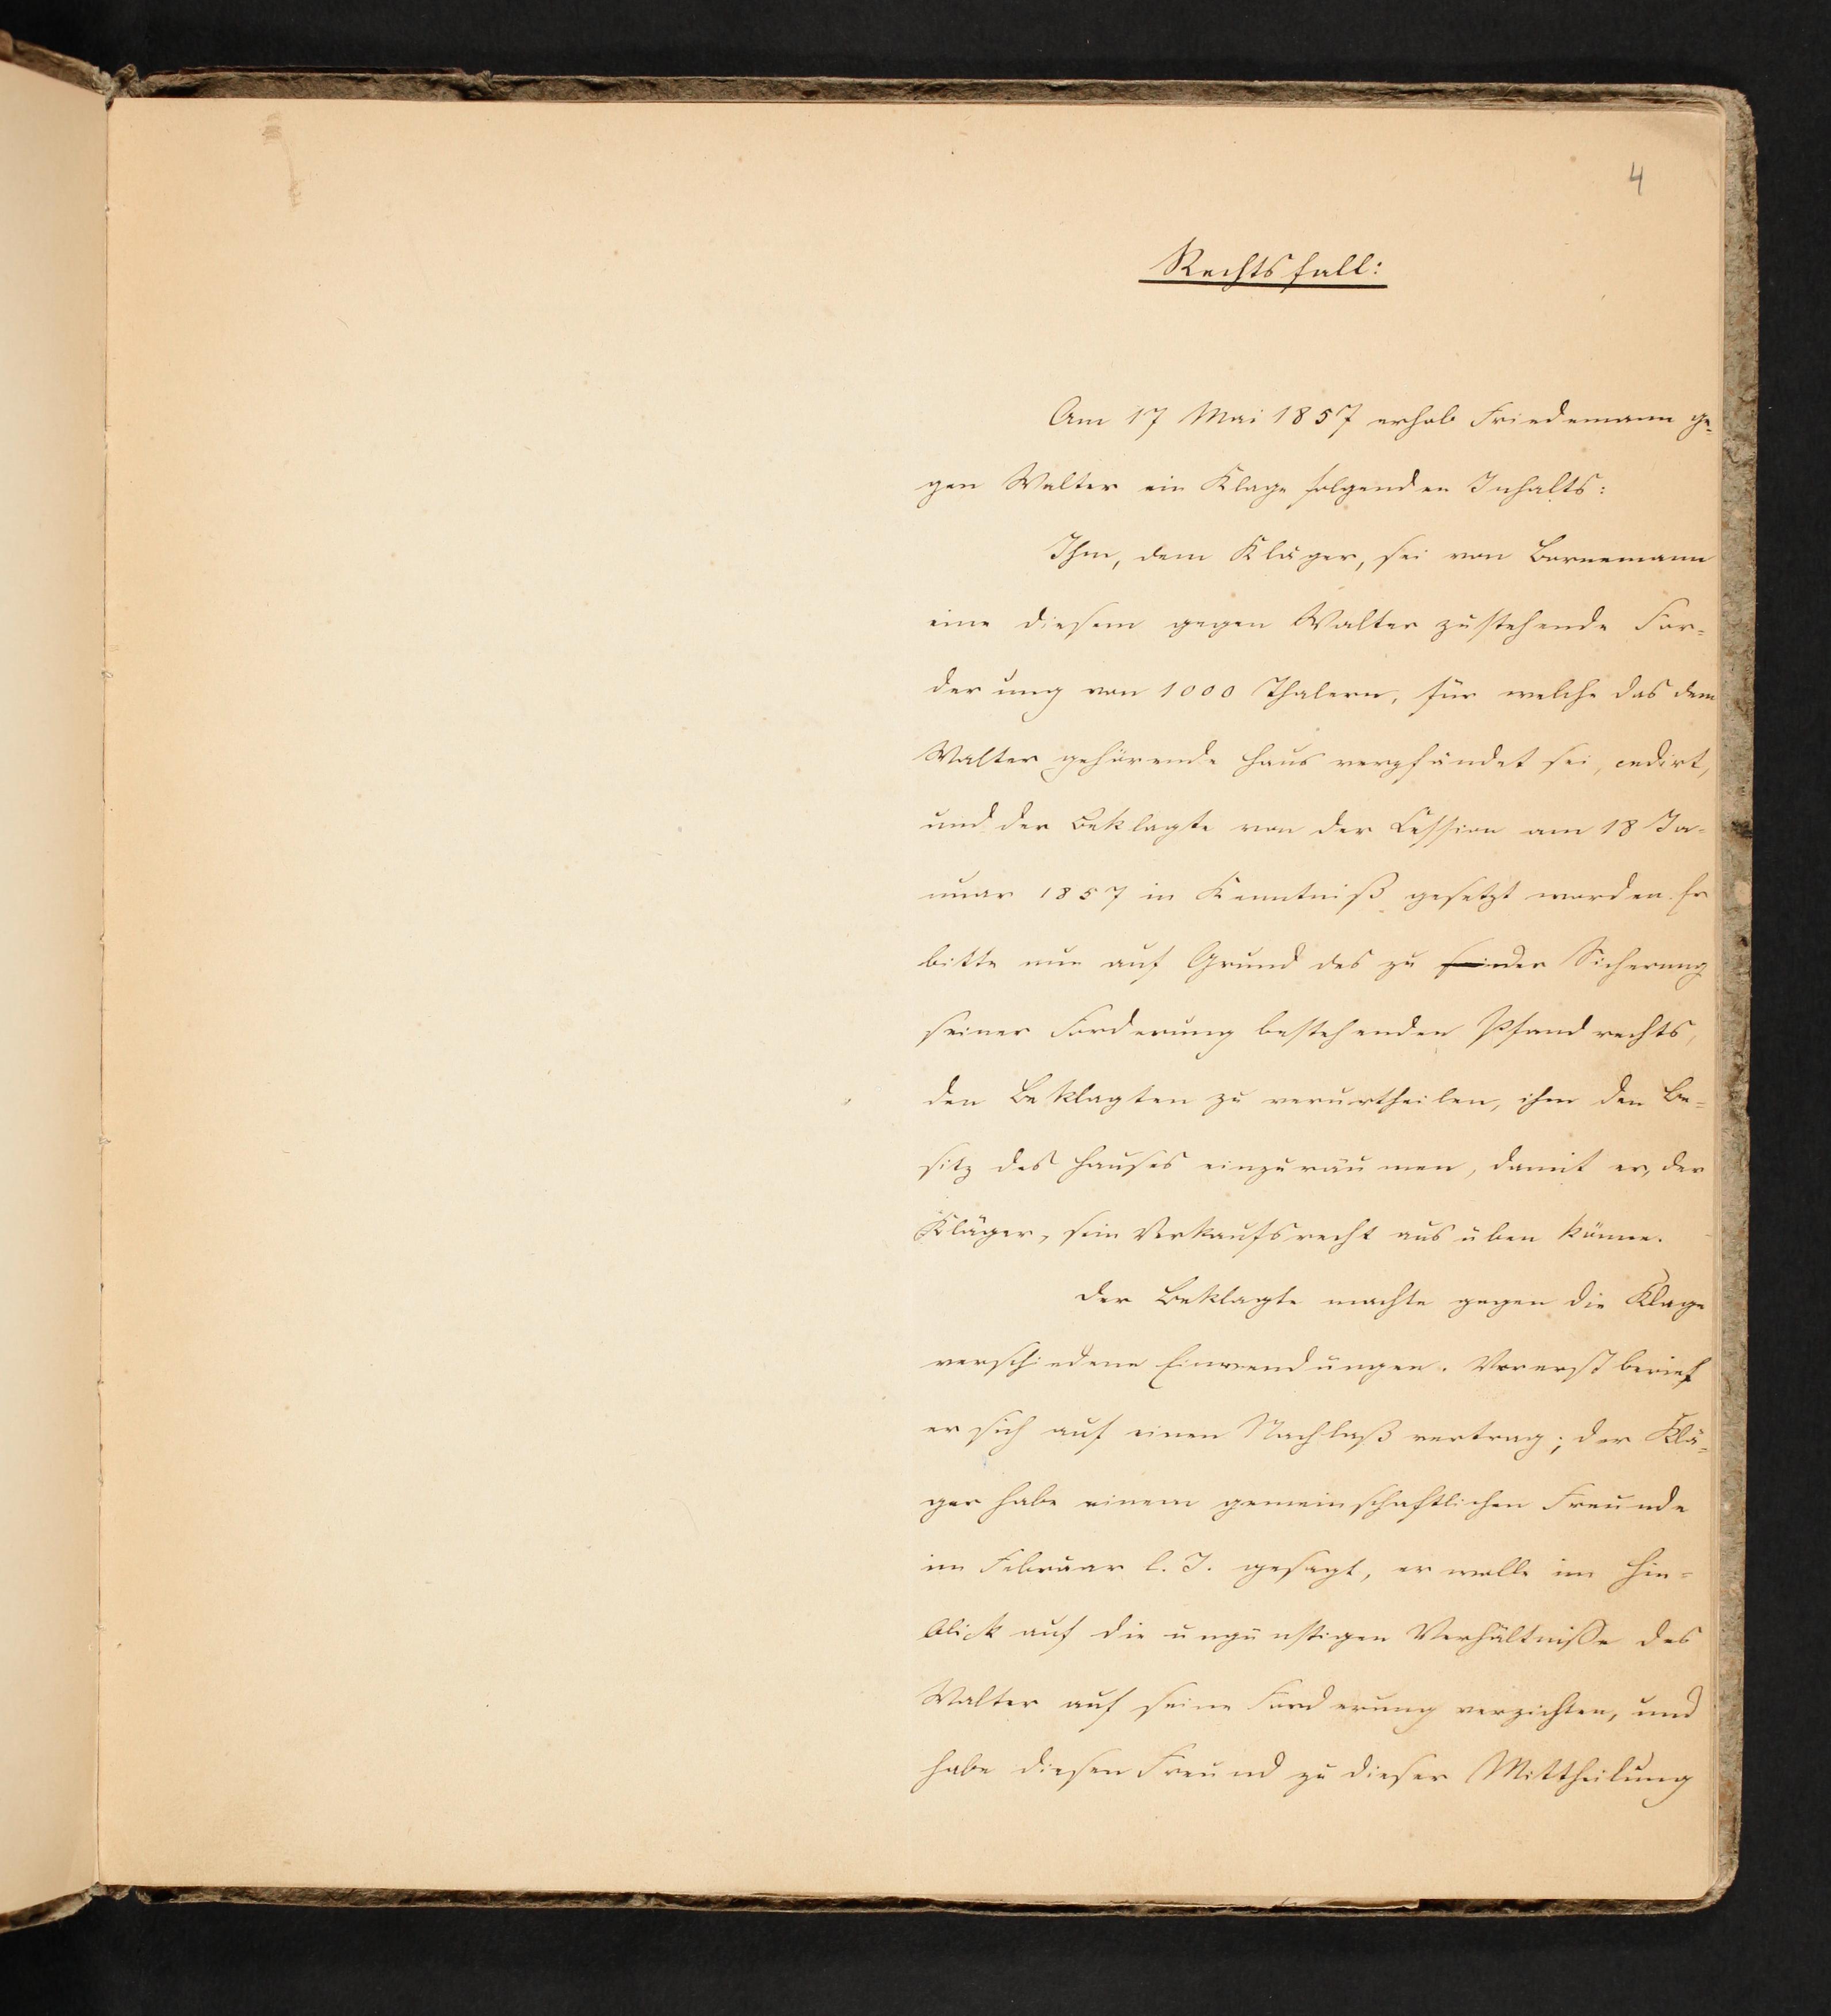 4
Rechtsfall:
Am 17 Mai 1857 erhob Friedemann ge-
gen Walter ein Klage folgenden Inhalts:
Ihm, dem Kläger, sei von Bornemann
eine diesem gegen Walter zustehende For-
derung von 1000 Thalern, für welche das dem
Walter gehörende Haus verpfändet sei, cedirt,
und der Beklagte von der Cession am 18 Ja-
nuar 1857 in Kenntniß gesetzt worden. Er
bitte nun auf Grund des zu sei der Sicherung
seiner Forderung bestehenden Pfandrechts,
den Beklagten zu verurtheilen, ihm den Be-
sitz des Hauses einzuräumen, damit er, der
Kläger, sein Verkaufsrecht ausüben könne.
Der Beklagte machte gegen die Klage
verschiedene Einwendungen. Vorerst berief
er sich auf einen Nachlaßvertrag; der Klä-
ger habe einem gemeinschaftlichen Freunde
im Februar l. J. gesagt, er wolle im Hin-
blick auf die ungünstigen Verhältnisse des
Walter auf seine Forderung verzichten, und
habe diesen Freund zu dieser Mittheilung